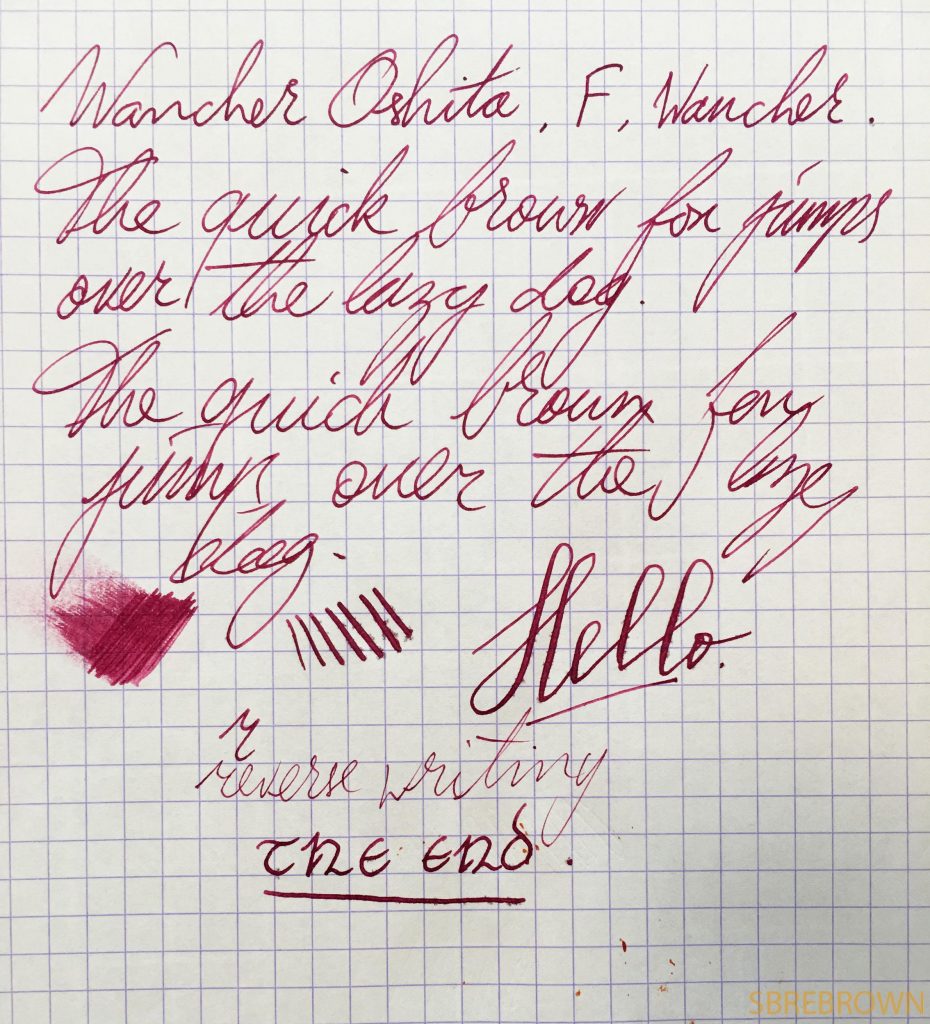 Wancher Oshita, F, Wancher.
The quick brown fox jumps
over the lazy dog.
The quick brown fox
jumps over the lazy
dog.
Hello.
r
reverse writing
THE END.
SBREBROWN